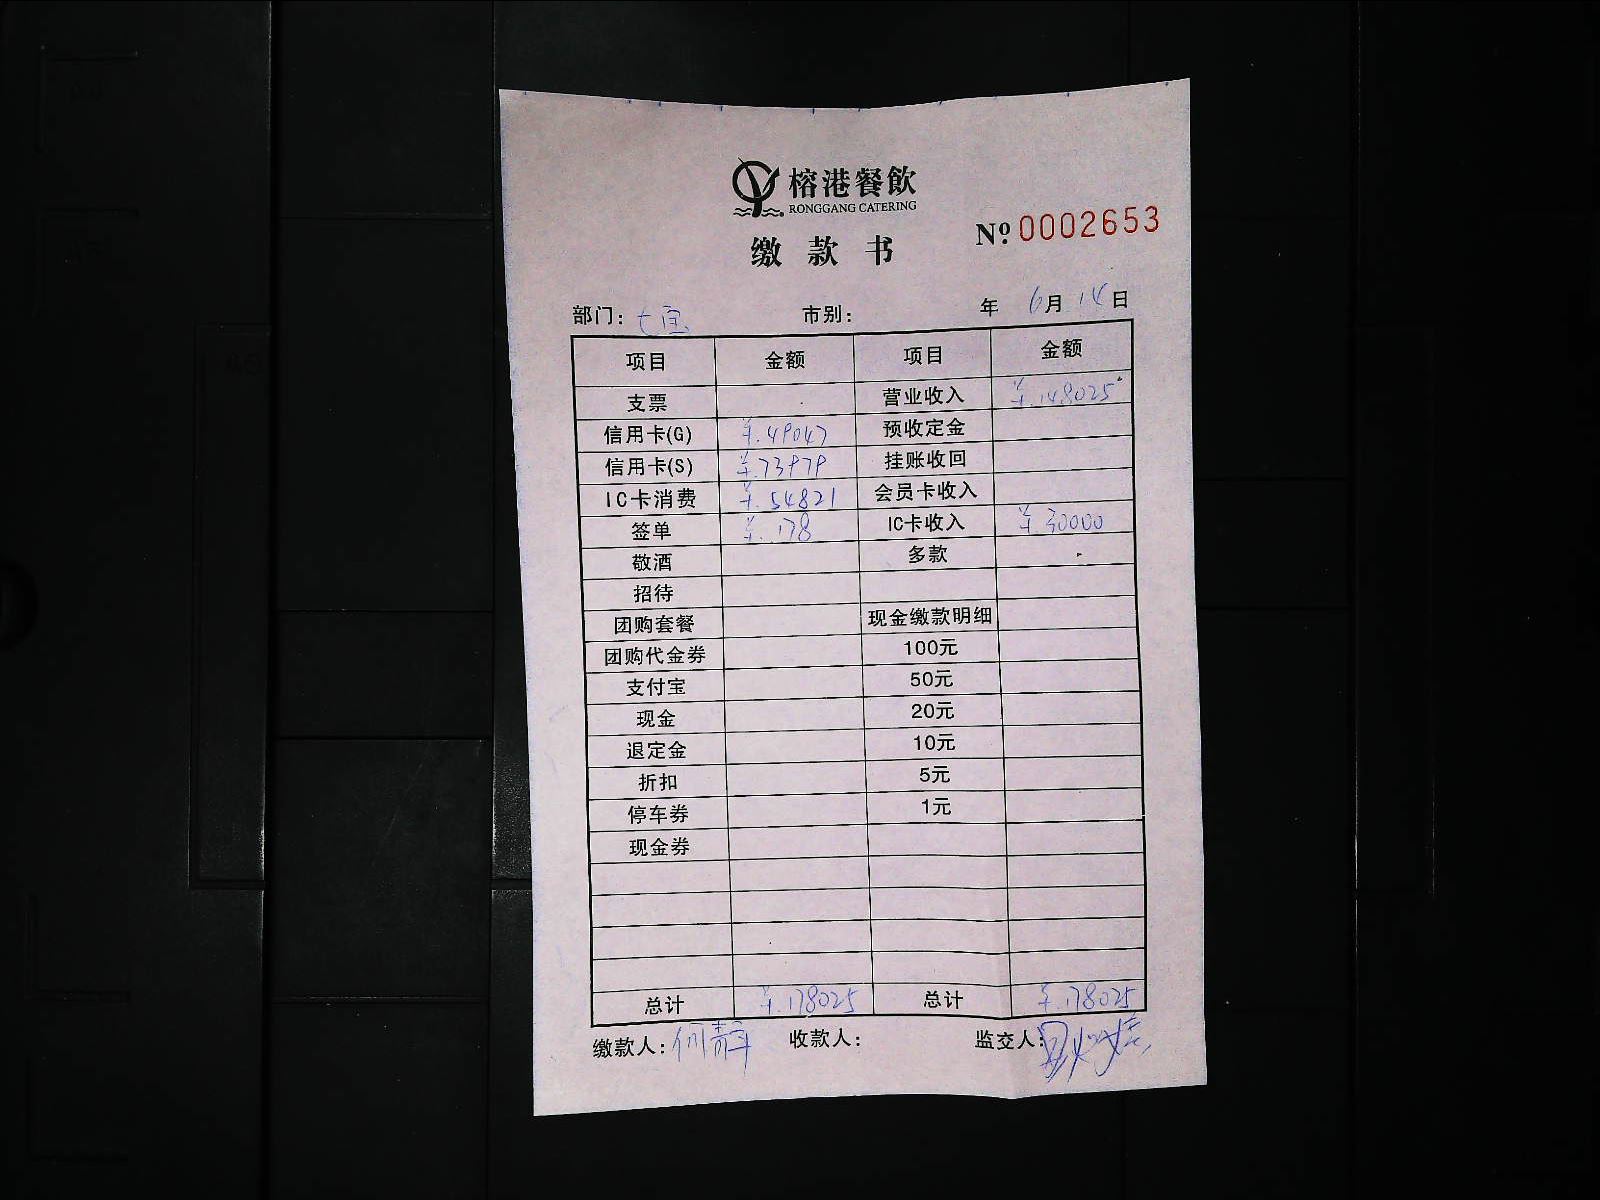 榕港餐飲
RONGGANG CATERING
缴款书
Nº 0002653
部门：七宝 市别： 年 6月14日
项目 金额 项目 金额
支票 营业收入 ¥.148025
信用卡(G) ¥.49047 预收定金
信用卡(S) ¥.73979 挂账收回
IC卡消费 ¥.54821 会员卡收入
签单 ¥.178 IC卡收入 ¥.30000
敬酒 多款
招待
团购套餐 现金缴款明细
团购代金券 100元
支付宝 50元
现金 20元
退定金 10元
折扣 5元
停车券 1元
现金券
总计 ¥.178025 总计 ¥.178025
缴款人：何静 收款人： 监交人：